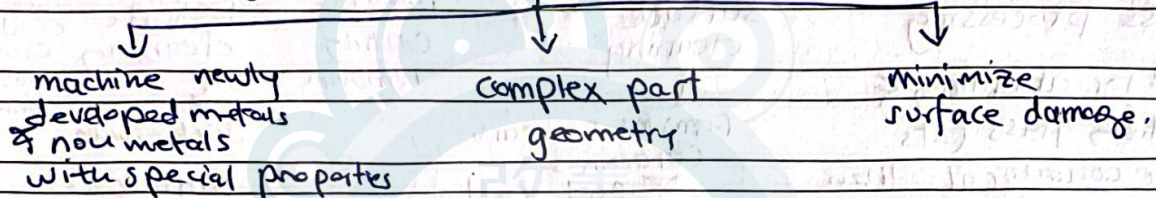 machine newly
developed metals
& non metals
with special propertes
complex part
geometry
minimize
surface damage.